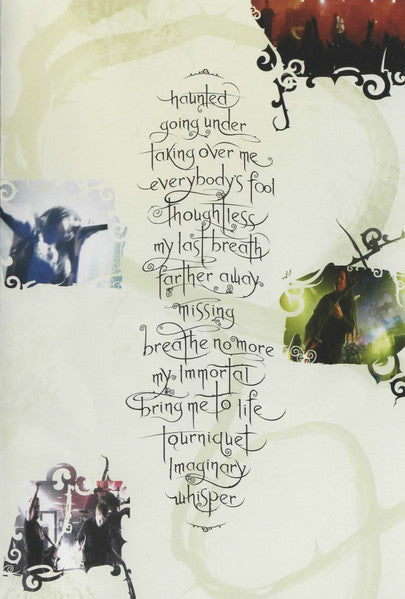 haunted
going under
taking over me
everybody's fool
thoughtless
my last breath
farther away
missing
breathe no more
my Immortal
bring me to life
tourniquet
Imaginary
whisper